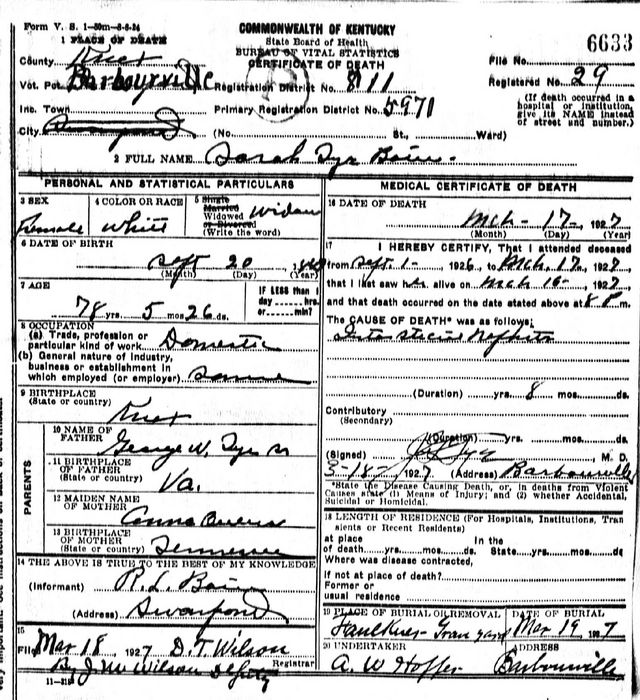 Form V. S. 1-50m-8-8-24
COMMONWEALTH OF KENTUCKY
State Board of Health
BUREAU OF VITAL STATISTICS
CERTIFICATE OF DEATH
6633
1 PLACE OF DEATH
County Knox
File No.
Vot. Pct. Barbourville
Registration District No. 811
Registered No. 29
Inc. Town
Primary Registration District No. 5971
(If death occurred in a hospital or institution, give its NAME instead of street and number.)
City Swanpond (No. St., Ward)
2 FULL NAME Sarah Tye Bain
PERSONAL AND STATISTICAL PARTICULARS
3 SEX
Female
4 COLOR OR RACE
White
5 Single
Married
Widowed
or Divorced
(Write the word)
Widow
6 DATE OF BIRTH
Sept 20
(Month) (Day) (Year)
7 AGE
78 yrs. 5 mos. 26 ds.
IF LESS than 1
day hrs.
or min?
8 OCCUPATION
(a) Trade, profession or
particular kind of work Domestic
(b) General nature of industry,
business or establishment in
which employed (or employer) same
9 BIRTHPLACE
(State or country)
Knox
PARENTS
10 NAME OF
FATHER
George W. Tye Sr
11 BIRTHPLACE
OF FATHER
(State or country)
Va.
12 MAIDEN NAME
OF MOTHER
Anna
13 BIRTHPLACE
OF MOTHER
(State or country) Tennessee
14 THE ABOVE IS TRUE TO THE BEST OF MY KNOWLEDGE
(Informant) R. L. Bain
(Address) Swanpond
15
Filed Mar 18 1927 D. T. Wilson
Registrar
By J M Wilson Deputy
MEDICAL CERTIFICATE OF DEATH
16 DATE OF DEATH
Mch - 17 - 1927
(Month) (Day) (Year)
17 I HEREBY CERTIFY, That I attended deceased
from Sept. 1 - 1926, to Mch. 17 1927
that I last saw her alive on Mch 16 - 1927
and that death occurred on the date stated above at 8 P m.
The CAUSE OF DEATH* was as follows:
Interstitial Nephritis
(Duration) yrs. 8 mos. ds.
Contributory
(Secondary)
(Duration) yrs. mos. ds.
(Signed) Tye, M. D.
3-18-1927 (Address) Barbourville
*State the Disease Causing Death, or, in deaths from Violent
Causes state (1) Means of Injury; and (2) whether Accidental,
Suicidal or Homicidal.
18 LENGTH OF RESIDENCE (For Hospitals, Institutions, Tran
sients or Recent Residents)
at place
of death yrs. mos. ds.
In the
State yrs. mos. ds.
Where was disease contracted,
If not at place of death?
Former or
usual residence
19 PLACE OF BURIAL OR REMOVAL
Faulkner Graveyard
DATE OF BURIAL
Mar 19 1927
20 UNDERTAKER
A. W Hopper
ADDRESS
Barbourville